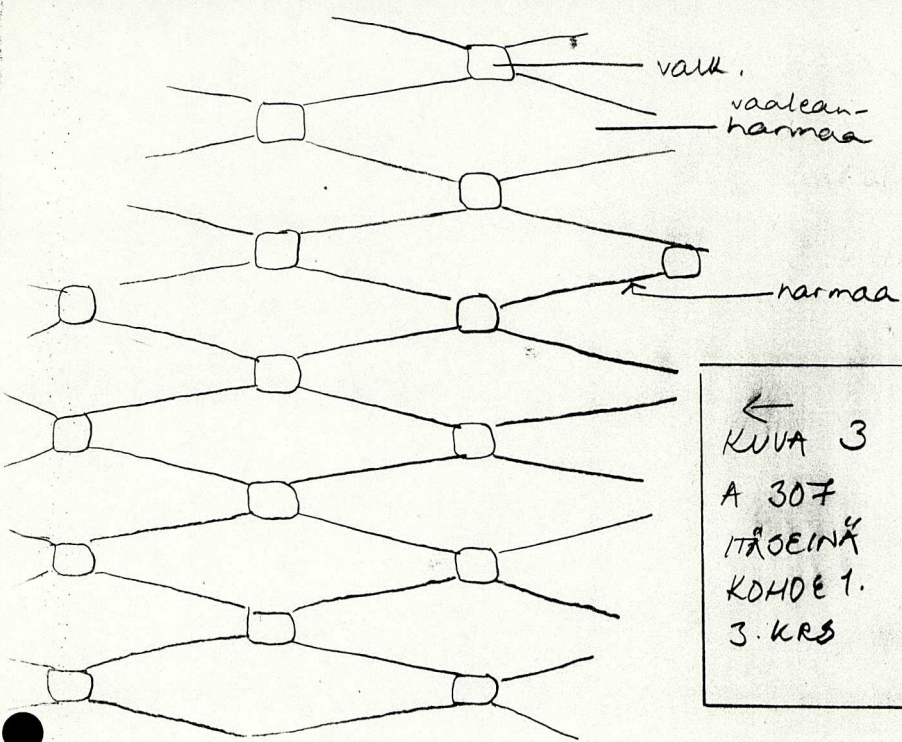 valk.
vaalean-
harmaa
harmaa
←
KUVA 3
A 307
ITÄSEINÄ
KOHDE 1.
3. KRS